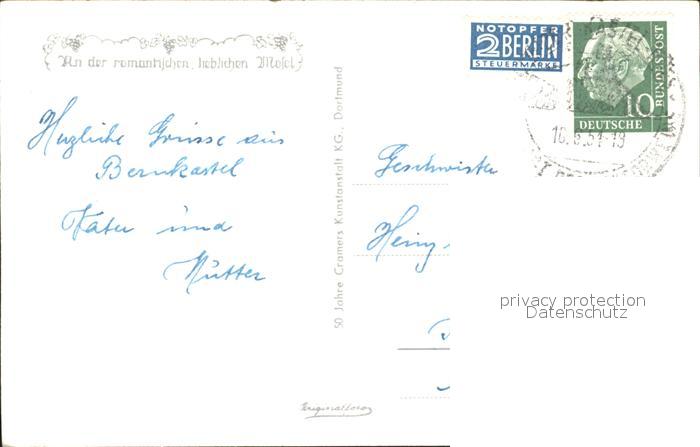 An der romantischen, lieblichen Mosel
Herzliche Grüsse aus
Bernkastel
Vater und
Mutter
50 Jahre Cramers Kunstanstalt KG, Dortmund
NOTOPFER
2 BERLIN
STEUERMARKE
DEUTSCHE
BUNDESPOST
10
Geschwister
Heinz
privacy protection
Datenschutz